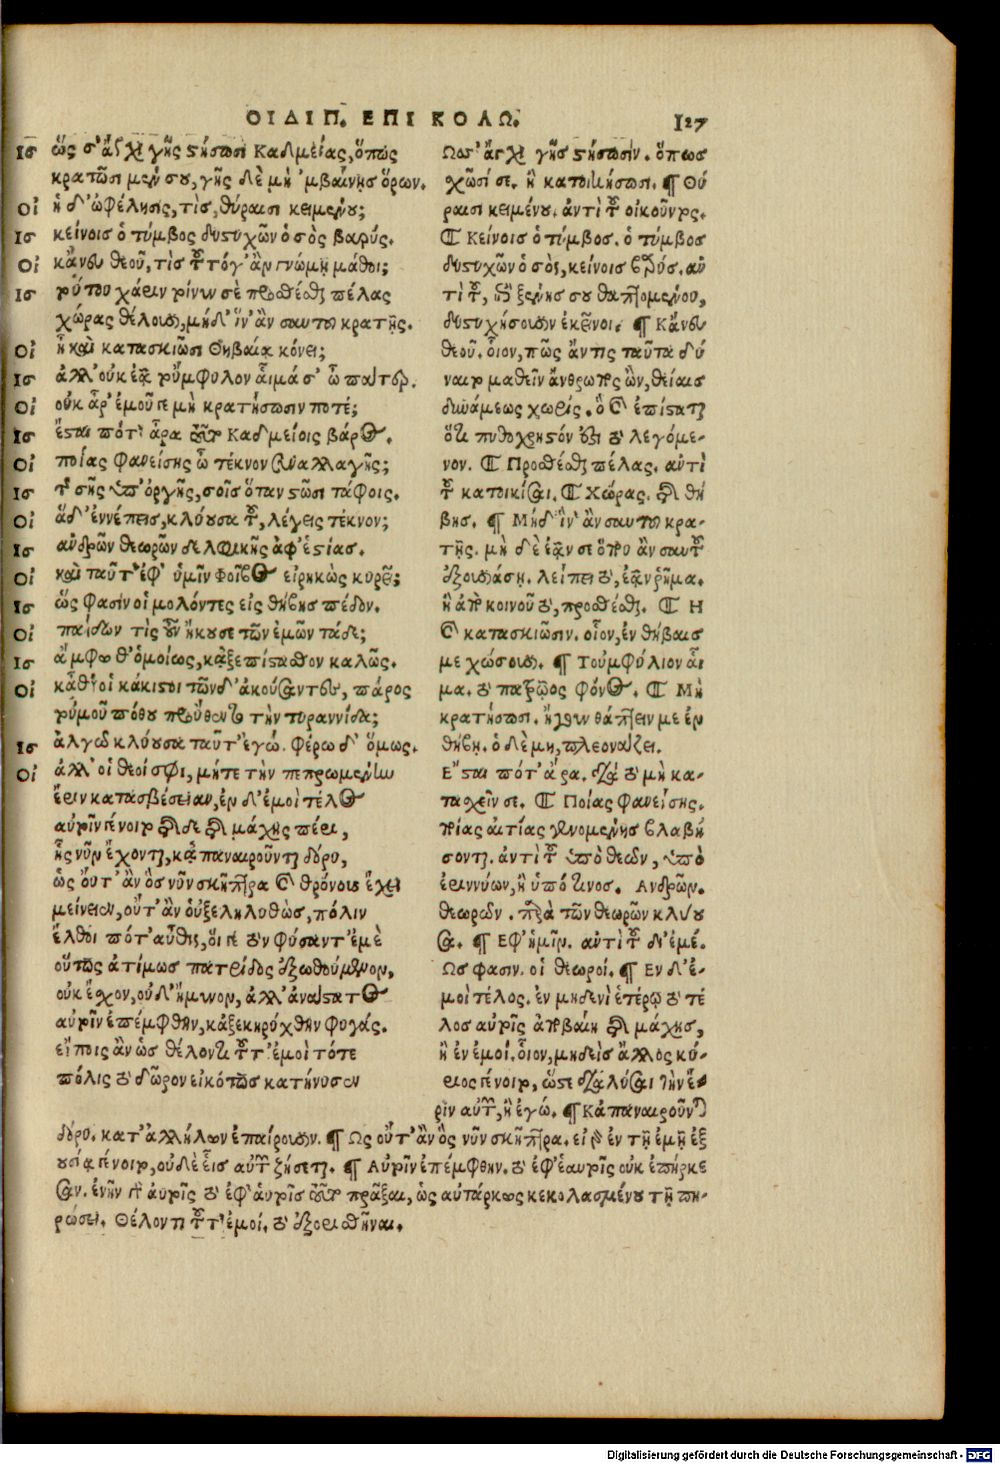 ΟΙΔΙΠ. ΕΠΙ ΚΟΛΩ. 127
Ισ ὥς σ' ἄγχι γῆς στήσωσι Καδμείας, ὅπως
κρατῶσι μέν σου, γῆς δὲ μὴ 'μβαίνῃς ὅρων.
Οἰ ἡ δ' ὠφέλησις, τίς, θύραισι κειμένου;
Ισ κείνοις ὁ τύμβος δυστυχῶν ὁ σὸς βαρύς.
Οἰ κἄνευ θεοῦ, τὶς τοῦτό γ' ἂν γνώμῃ μάθοι;
Ισ τούτου χάριν τοίνυν σὲ προσθέσθαι πέλας
χώρας θέλουσι, μήδ' ἵν' ἂν σαυτοῦ κρατῇς.
Οἰ ἦ καὶ κατασκιῶσι Θηβαίᾳ κόνει;
Ισ ἀλλ' οὐκ ἐᾷ τοὔμφυλον αἷμά σ' ὦ πάτερ.
Οἰ οὐκ ἆρ' ἐμοῦ γε μὴ κρατήσωσιν ποτέ;
Ισ ἔσται πότ' ἆρα τοῦτο Καδμείοις βάρος.
Οἰ ποίας φανείσης ὦ τέκνον συναλλαγῆς;
Ισ τῆς σῆς ὑπ' ὀργῆς, σοῖς ὅταν στῶσι τάφοις.
Οἰ ἃ δ' ἐννέπεις, κλύουσα τοῦ, λέγεις τέκνον;
Ισ ἀνδρῶν θεωρῶν δελφικῆς ἀφ' ἑστίας.
Οἰ καὶ ταῦτ' ἐφ' ὑμῖν Φοῖβος εἰρηκὼς κυρεῖ;
Ισ ὥς φασίν οἱ μολόντες εἰς θήβης πέδον.
Οἰ παίδων τὶς οὖν ἤκουσε τῶν ἐμῶν τάδε;
Ισ ἄμφω θ' ὁμοίως, κἀξεπίστασθον καλῶς.
Οἰ κᾆθ' οἱ κάκιστοι τῶνδ' ἀκούσαντες, πάρος
τοὐμοῦ πόθου προὔθεντο τὴν τυραννίδα;
Ισ ἀλγῶ κλύουσα ταῦτ' ἐγώ. φέρω δ' ὅμως.
Οἰ ἀλλ' οἱ θεοί σφι, μήτε τὴν πεπρωμένην
ἔριν κατασβέσειαν, ἐν δ' ἐμοὶ τέλος
αὐτοῖν γένοιτο τῆσδε τῆς μάχης πέρι,
ἧς νῦν ἔχονται, κἀπαναιροῦνται δόρυ,
ὡς οὔτ' ἂν ὃς νῦν σκῆπτρα καὶ θρόνους ἔχει
μείνειεν, οὔτ' ἂν οὑξεληλυθὼς, πόλιν
ἔλθοι πότ' αὖθις, οἵ γε τὸν φύσαντ' ἐμὲ
οὕτως ἀτίμως πατρίδος ἐξωθούμενον,
οὐκ ἔσχον, οὐδ' ἤμυνον, ἀλλ' ἀνάστατος
αὐτοῖν ἐπέμφθην, κἀξεκηρύχθην φυγάς.
εἴποις ἂν ὡς θέλοντι τοῦτ' ἐμοὶ τότε
πόλις τὸ δῶρον εἰκότως κατήνυσεν
Ὥς σ' ἄγχι γῆς στήσωσιν. ὅπως
χῶσί σε. ἢ κατοικήσωσι. ¶ Θύ
ραισι κειμένου. ἀντὶ τοῦ οἰκοῦντος.
¶ Κείνοις ὁ τύμβος. ὁ τύμβος
δυστυχῶν ὁ σὸς, κείνοις βαρύς. ἀν
τὶ τοῦ, ἐπὶ ξένης σου θαπτομένου,
δυστυχήσουσιν ἐκεῖνοι. ¶ Κἄνευ
θεοῦ. οἷον, πῶς ἄν τις ταῦτα δύ
ναιτο μαθεῖν ἄνθρωπος ὢν, θείας
δυνάμεως χωρίς. ὃ καὶ ἐπίσταται
ὅτι πυθόχρηστόν ἐστι τὸ λεγόμε-
νον. ¶ Προσθέσθαι πέλας. αὐτὶ
τοῦ κατοικίσαι. ¶ Χώρας. τῆς θή
βης. ¶ Μήδ' ἵν' ἂν σαυτοῦ κρα-
τῇς. μὴ δὲ ἐᾶν σε ὅπου ἂν σαυτοῦ
ἐξουσιάσῃ. λείπει τὸ, ἐᾶν ῥῆμα.
ἢ ἀπὸ κοινοῦ τὸ, προσθέσθαι. ¶ Η
καὶ κατασκιῶσιν. οἷον, ἐν θήβαις
με χώσουσι. ¶ Τοὔμφύλιον αἷ
μα. τὸ πατρῷος φόνος. ¶ Μὴ
κρατήσωσι. ἤγουν θάπτειν με ἐν
θήβῃ. ὁ δὲ μη, πλεονάζει.
Ἔσται πότ' ἆρα. διὰ τὸ μὴ κα-
τασχεῖν σε. ¶ Ποίας φανείσης.
ποίας αἰτίας γενομένης βλαβή
σονται. ἀντὶ τοῦ ὑπὸ θεῶν, ὑπὸ
ἐριννύων, ἢ ὑπό τινος. Ανδρῶν.
θεωρῶν. παρὰ τῶν θεωρῶν κλύου
σα. ¶ Ἐφ' ἡμῖν. αντὶ τοῦ δι' ἐμέ.
Ως φασιν. οἱ θεωροί. ¶ Ἐν δ' ἐ-
μοὶ τέλος. ἐν μηδενὶ ἑτέρῳ τὸ τέ
λος αὐτοῖς ἀποβαίη τῆς μάχης,
ἢ ἐν ἐμοί. οἷον, μηδεὶς ἄλλος κύ-
ριος γένοιτο, ὥστε διαλύσαι τὴν ἔ-
ριν αὐτῶν, ἢ ἐγώ. ¶ Κἀπαναιροῦνται
δόρυ. κατ' ἀλλήλων ἐπαίρουσιν. ¶ Ως οὔτ' ἂν ὃς νῦν σκῆπτρα. εἰ γὰρ ἐν τῇ ἐμῇ ἐξ
ουσίᾳ γένοιτο, οὐδὲ εἷς αὐτῶν ζήσεται. ¶ Αὐτοῖν ἐπέμφθην. τὸ ἐφ' ἑαυτοῖς οὐκ ἐπήρκε
σαν. ἐνῆν γὰρ αὐτοῖς τὸ ἐφ' αὑτοῖς τοῦτο πρᾶξαι, ὡς αὐτάρκως κεκολασμένου τῇ πη-
ρώσει. Θέλοντι τοῦτ' ἐμοί. τὸ ἐξορισθῆναι.
Digitalisierung gefördert durch die Deutsche Forschungsgemeinschaft - DFG